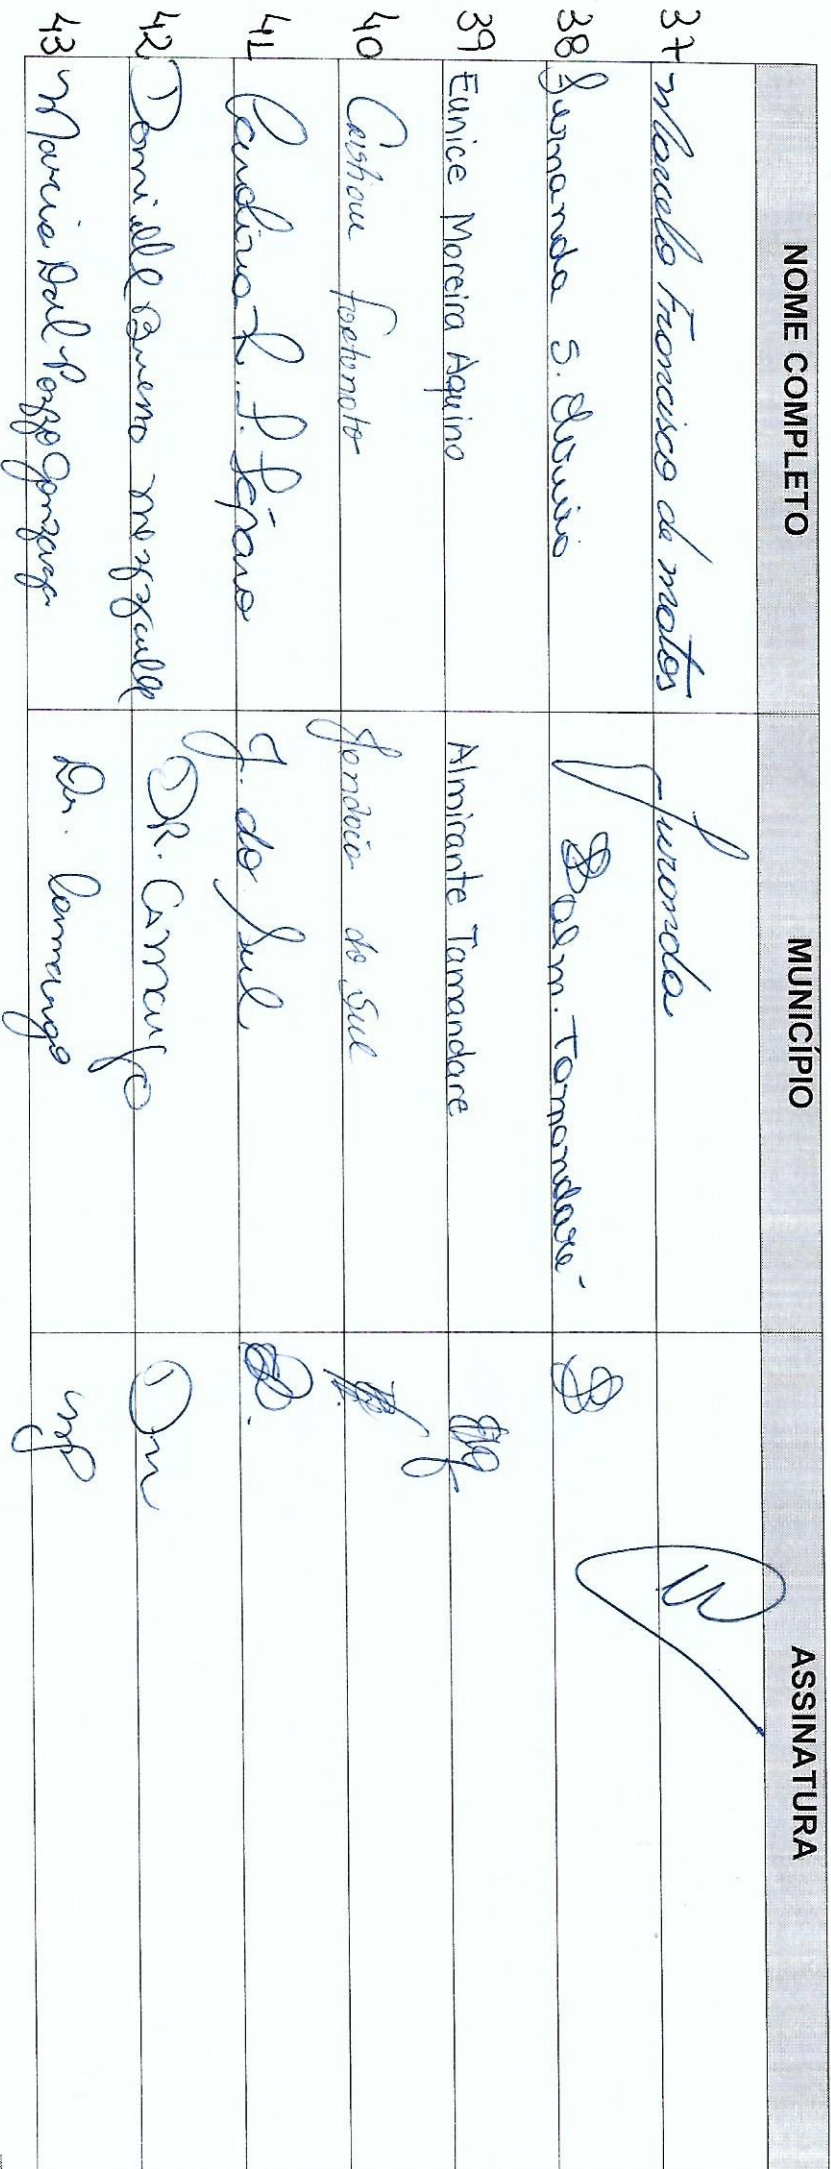 NOME COMPLETO MUNICÍPIO ASSINATURA
37 Marcelo Francisco de Matos Juranda
38 Fernanda S. Alm. Tamandaré
39 Eunice Moreira Aquino Almirante Tamandare
40 Cristiane Fortunato Jandaia do Sul
41 J. do Sul
42 Danielle Bueno DR. Camargo
43 Marcia Dal Pozzo Gonzaga Dr. Camargo